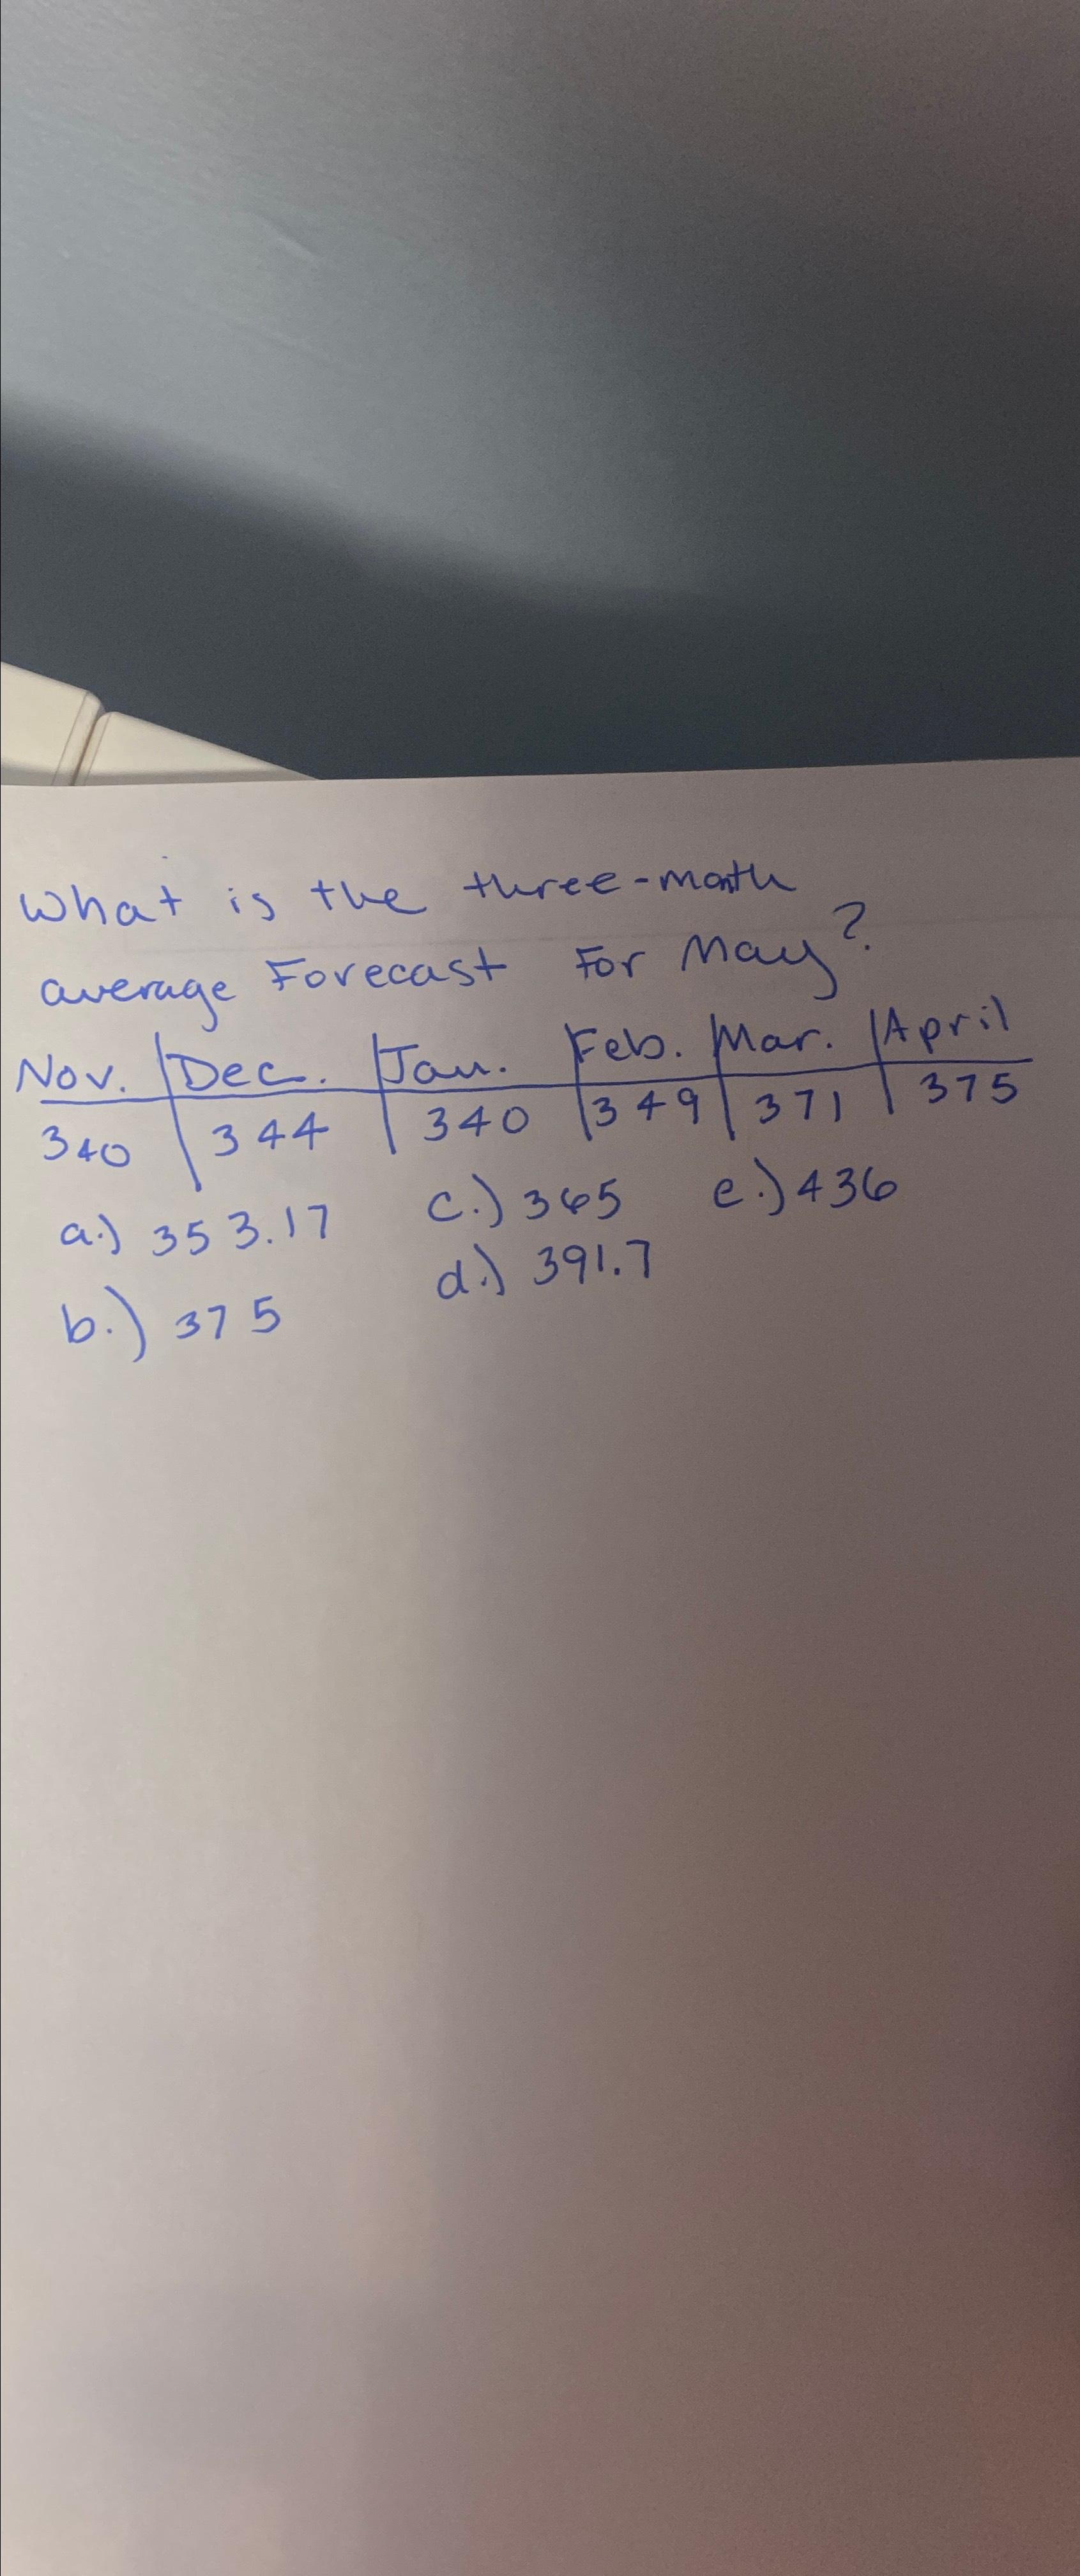 What is the three-month
average Forecast For May?
Nov. | Dec. | Jan. | Feb. | Mar. | April
340 | 344 | 340 | 349 | 371 | 375
a.) 353.17 c.) 365 e.) 436
b.) 375 d.) 391.7